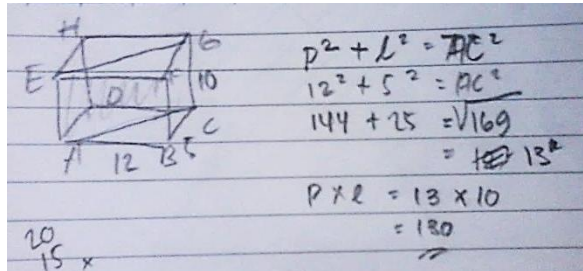 H G
E F
D 10
A B C
12 5
p² + l² = AC²
12² + 5² = AC²
144 + 25 = √169
= 13
p x l = 13 x 10
= 130
20
15 x